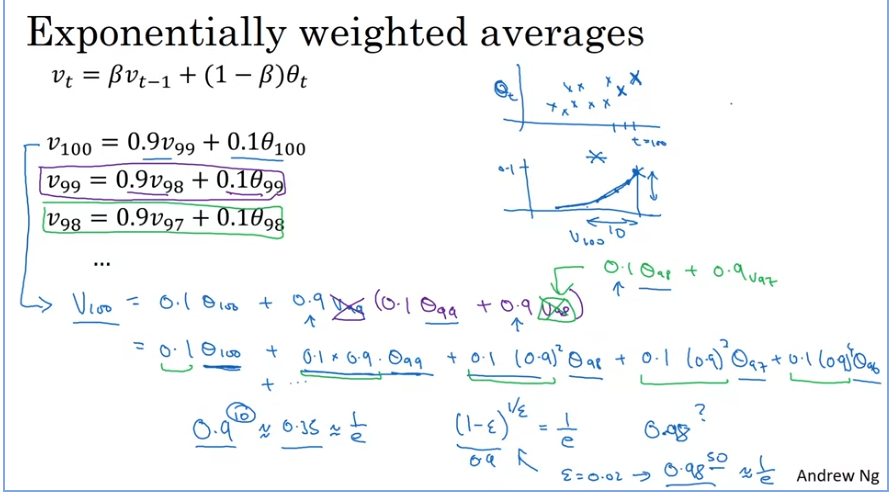 Exponentially weighted averages
vₜ = βvₜ₋₁ + (1 − β)θₜ
θₜ
t=100
v₁₀₀ = 0.9v₉₉ + 0.1θ₁₀₀
v₉₉ = 0.9v₉₈ + 0.1θ₉₉
v₉₈ = 0.9v₉₇ + 0.1θ₉₈
...
0.1
V₁₀₀ 10
0.1 θ₉₈ + 0.9 v₉₇
V₁₀₀ = 0.1 θ₁₀₀ + 0.9 v₉₉ (0.1 θ₉₉ + 0.9 v₉₈)
= 0.1 θ₁₀₀ + 0.1 × 0.9 · θ₉₉ + 0.1 (0.9)² θ₉₈ + 0.1 (0.9)³ θ₉₇ + 0.1 (0.9)⁴ θ₉₆
+ ...
0.9¹⁰ ≈ 0.35 ≈ 1/e
(1-ε)^(1/ε) = 1/e
0.9
0.98 ?
ε = 0.02 → 0.98⁵⁰ ≈ 1/e
Andrew Ng